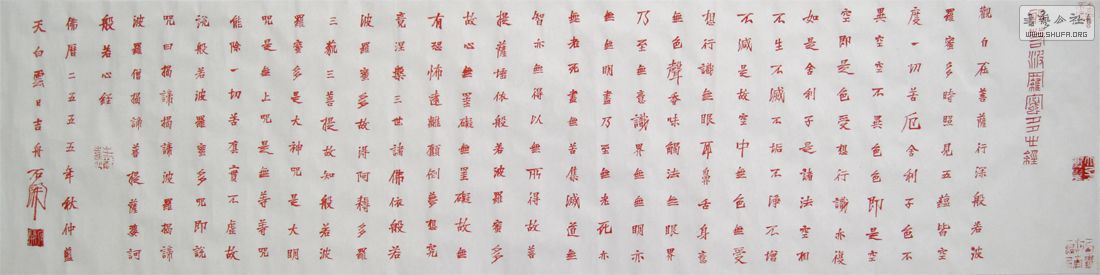 書法公社
WWW.SHUFA.ORG
般若波羅蜜多心經
觀自在菩薩行深般若波
羅蜜多時照見五蘊皆空
度一切苦厄舍利子色不
異空空不異色色即是空
空即是色受想行識亦復
如是舍利子是諸法空相
不生不滅不垢不淨不增
不減是故空中無色無受
想行識無眼耳鼻舌身意
無色聲香味觸法無眼界
乃至無意識界無無明亦
無無明盡乃至無老死亦
無老死盡無苦集滅道無
智亦無得以無所得故菩
提薩埵依般若波羅蜜多
故心無罣礙無罣礙故無
有恐怖遠離顛倒夢想究
竟涅槃三世諸佛依般若
波羅蜜多故得阿耨多羅
三藐三菩提故知般若波
羅蜜多是大神咒是大明
咒是無上咒是無等等咒
能除一切苦真實不虛故
說般若波羅蜜多咒即說
咒曰揭諦揭諦波羅揭諦
波羅僧揭諦菩提薩婆訶
般若心經
佛曆二五五五年秋仲藍
天白雲日吉舟石